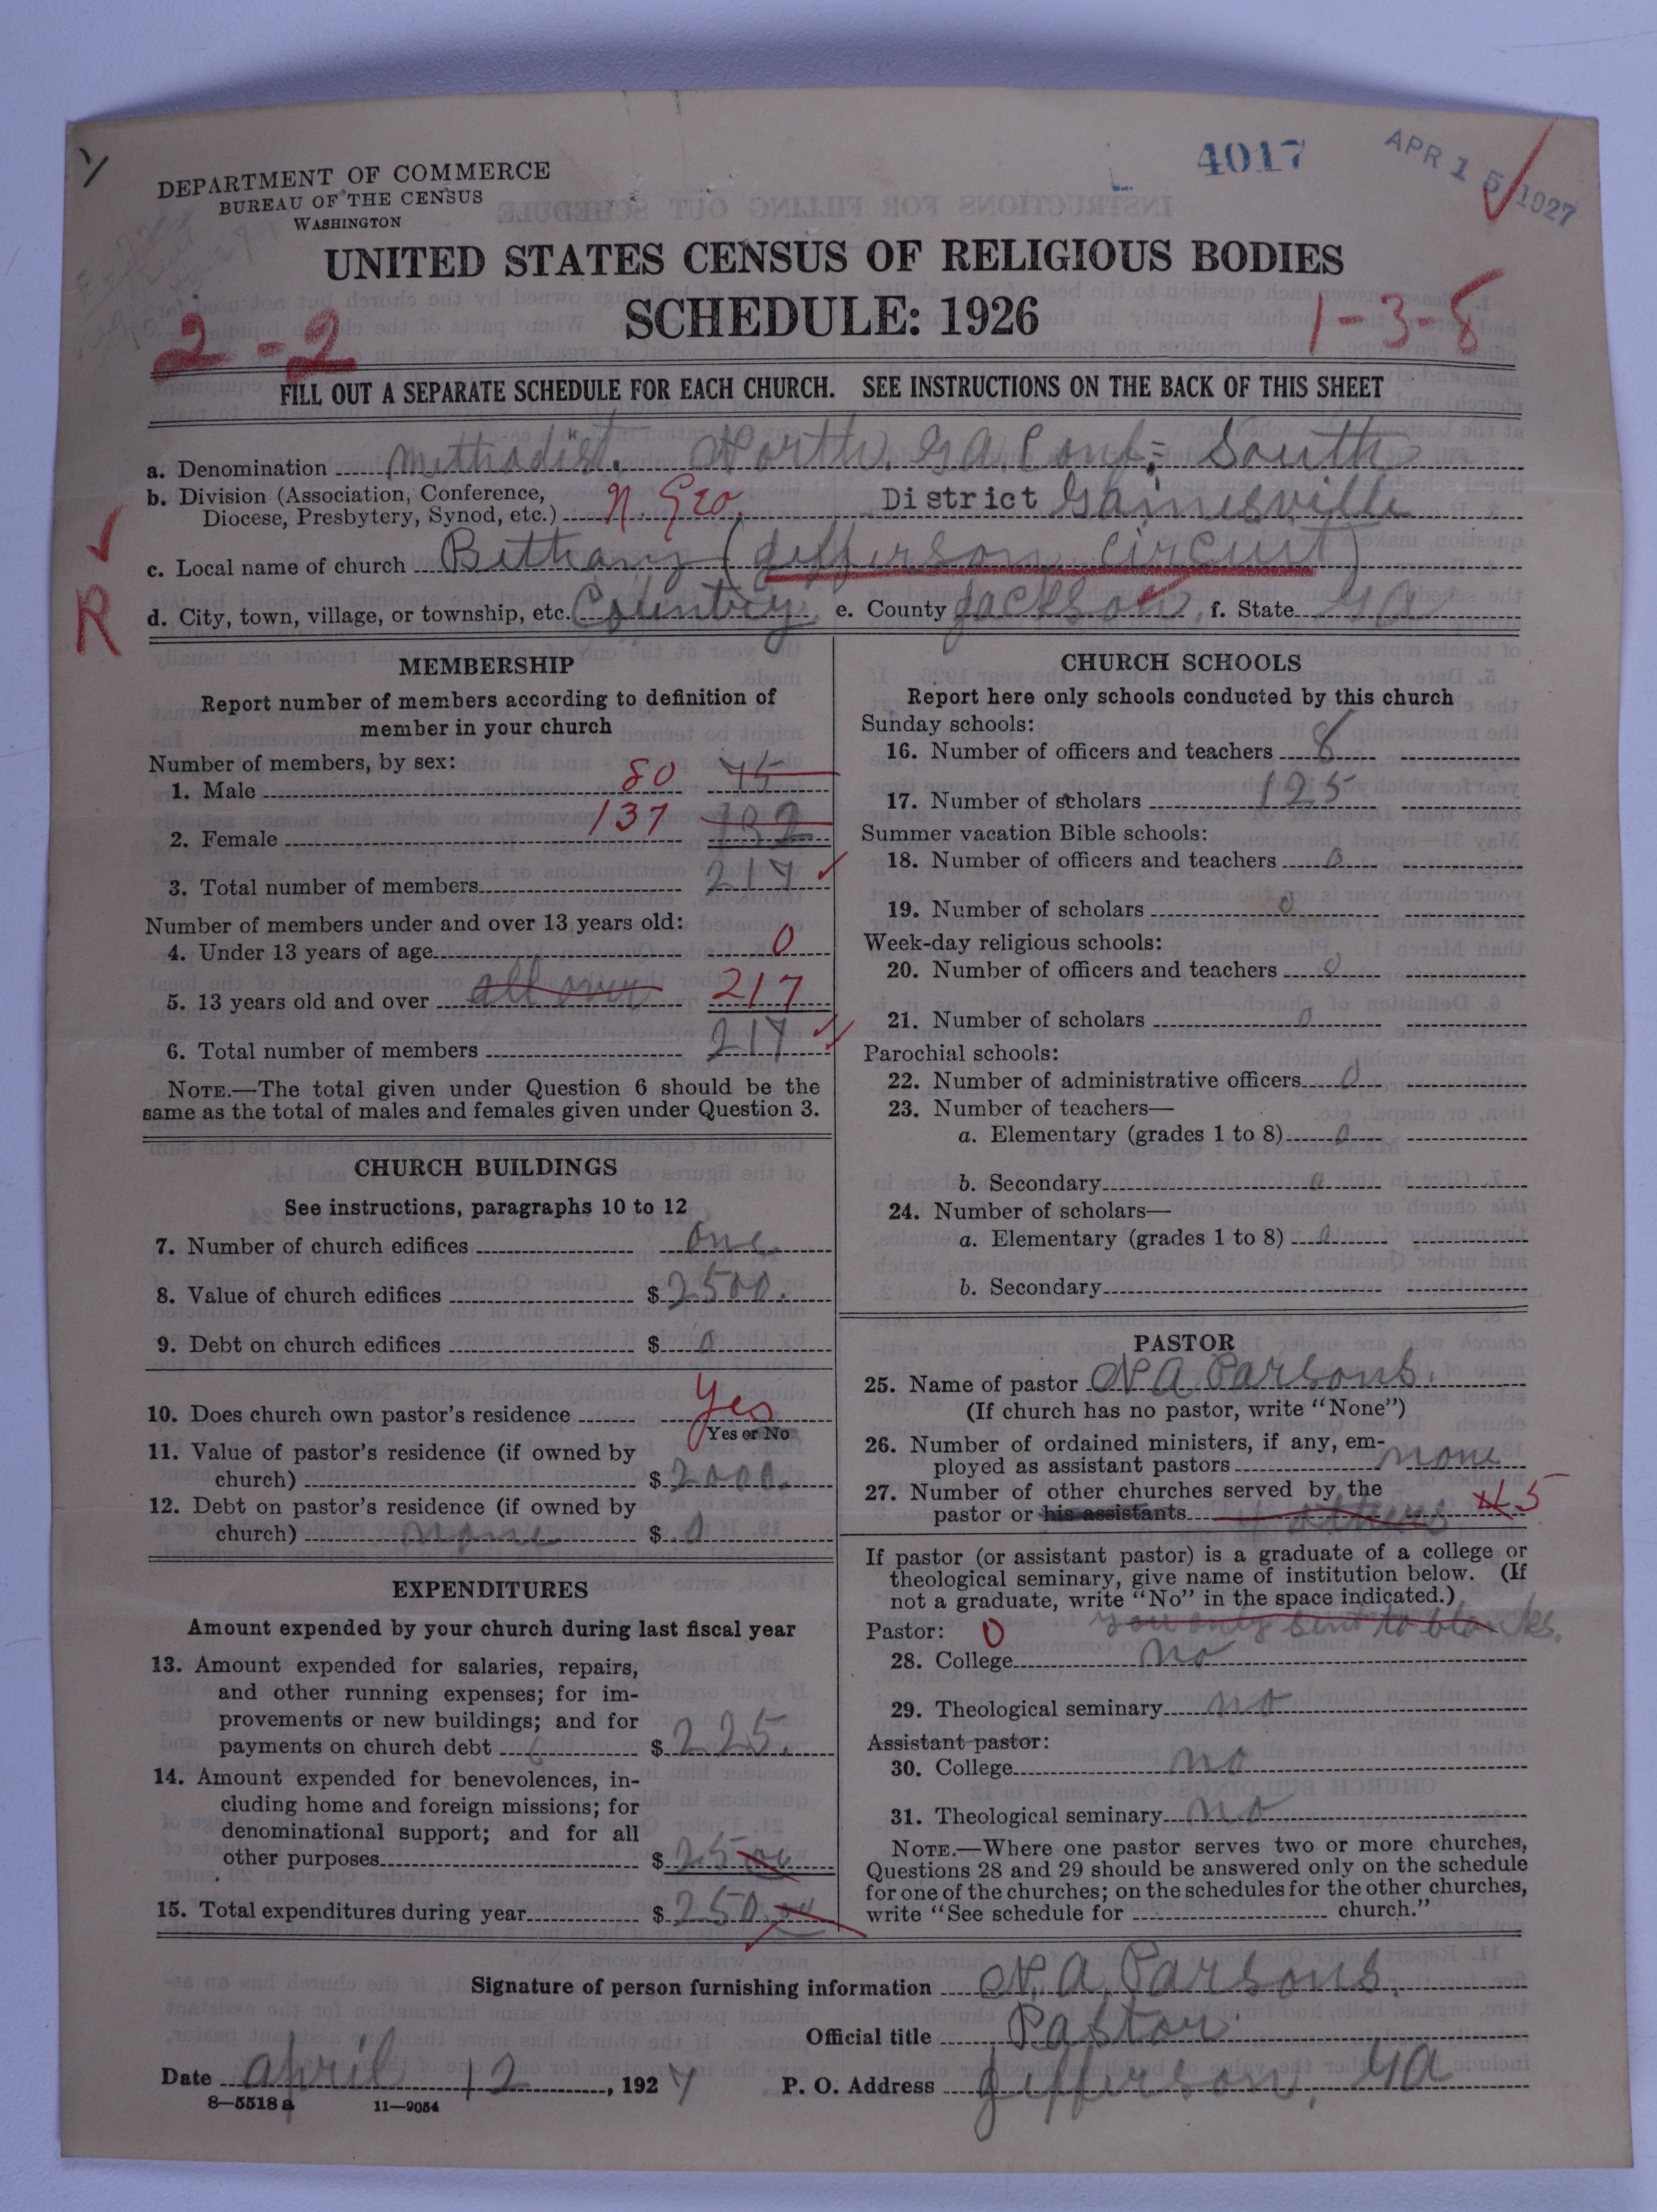 4017
APR 15 1927
DEPARTMENT OF COMMERCE
BUREAU OF THE CENSUS
WASHINGTON
UNITED STATES CENSUS OF RELIGIOUS BODIES
SCHEDULE: 1926
2-2
1-3-8
FILL OUT A SEPARATE SCHEDULE FOR EACH CHURCH. SEE INSTRUCTIONS ON THE BACK OF THIS SHEET
a. Denomination Methodist. North. Ga. Conf; South
b. Division (Association, Conference, Diocese, Presbytery, Synod, etc.) N. Geo. District Gainesville
c. Local name of church Bethany (Jefferson Circuit)
R
d. City, town, village, or township, etc. Country e. County Jackson f. State Ga
MEMBERSHIP
Report number of members according to definition of
member in your church
Number of members, by sex:
1. Male 80 75
2. Female 137 132
3. Total number of members 217
Number of members under and over 13 years old:
4. Under 13 years of age 0
5. 13 years old and over all over 217
6. Total number of members 217
NOTE.—The total given under Question 6 should be the
same as the total of males and females given under Question 3.
CHURCH BUILDINGS
See instructions, paragraphs 10 to 12
7. Number of church edifices one
8. Value of church edifices $2500.
9. Debt on church edifices $ 0
10. Does church own pastor's residence Yes
Yes or No
11. Value of pastor's residence (if owned by
church) $2000.
12. Debt on pastor's residence (if owned by
church) none $ 0
EXPENDITURES
Amount expended by your church during last fiscal year
13. Amount expended for salaries, repairs,
and other running expenses; for im-
provements or new buildings; and for
payments on church debt $225.
14. Amount expended for benevolences, in-
cluding home and foreign missions; for
denominational support; and for all
other purposes $25 00
15. Total expenditures during year $250.00
CHURCH SCHOOLS
Report here only schools conducted by this church
Sunday schools:
16. Number of officers and teachers 8
17. Number of scholars 125
Summer vacation Bible schools:
18. Number of officers and teachers 0
19. Number of scholars 0
Week-day religious schools:
20. Number of officers and teachers 0
21. Number of scholars 0
Parochial schools:
22. Number of administrative officers 0
23. Number of teachers—
a. Elementary (grades 1 to 8) 0
b. Secondary 0
24. Number of scholars—
a. Elementary (grades 1 to 8) 0
b. Secondary
PASTOR
25. Name of pastor N A Parsons.
(If church has no pastor, write "None")
26. Number of ordained ministers, if any, em-
ployed as assistant pastors none
27. Number of other churches served by the
pastor or his assistants 4 others 5
If pastor (or assistant pastor) is a graduate of a college or
theological seminary, give name of institution below. (If
not a graduate, write "No" in the space indicated.)
you only sent 10 blanks.
Pastor: 0
28. College no
29. Theological seminary no
Assistant pastor:
30. College no
31. Theological seminary no
NOTE.—Where one pastor serves two or more churches,
Questions 28 and 29 should be answered only on the schedule
for one of the churches; on the schedules for the other churches,
write "See schedule for church."
Signature of person furnishing information N. A. Parsons.
Official title Pastor.
Date April 12, 1927 P. O. Address Jefferson, Ga
8—5518 a 11—9054